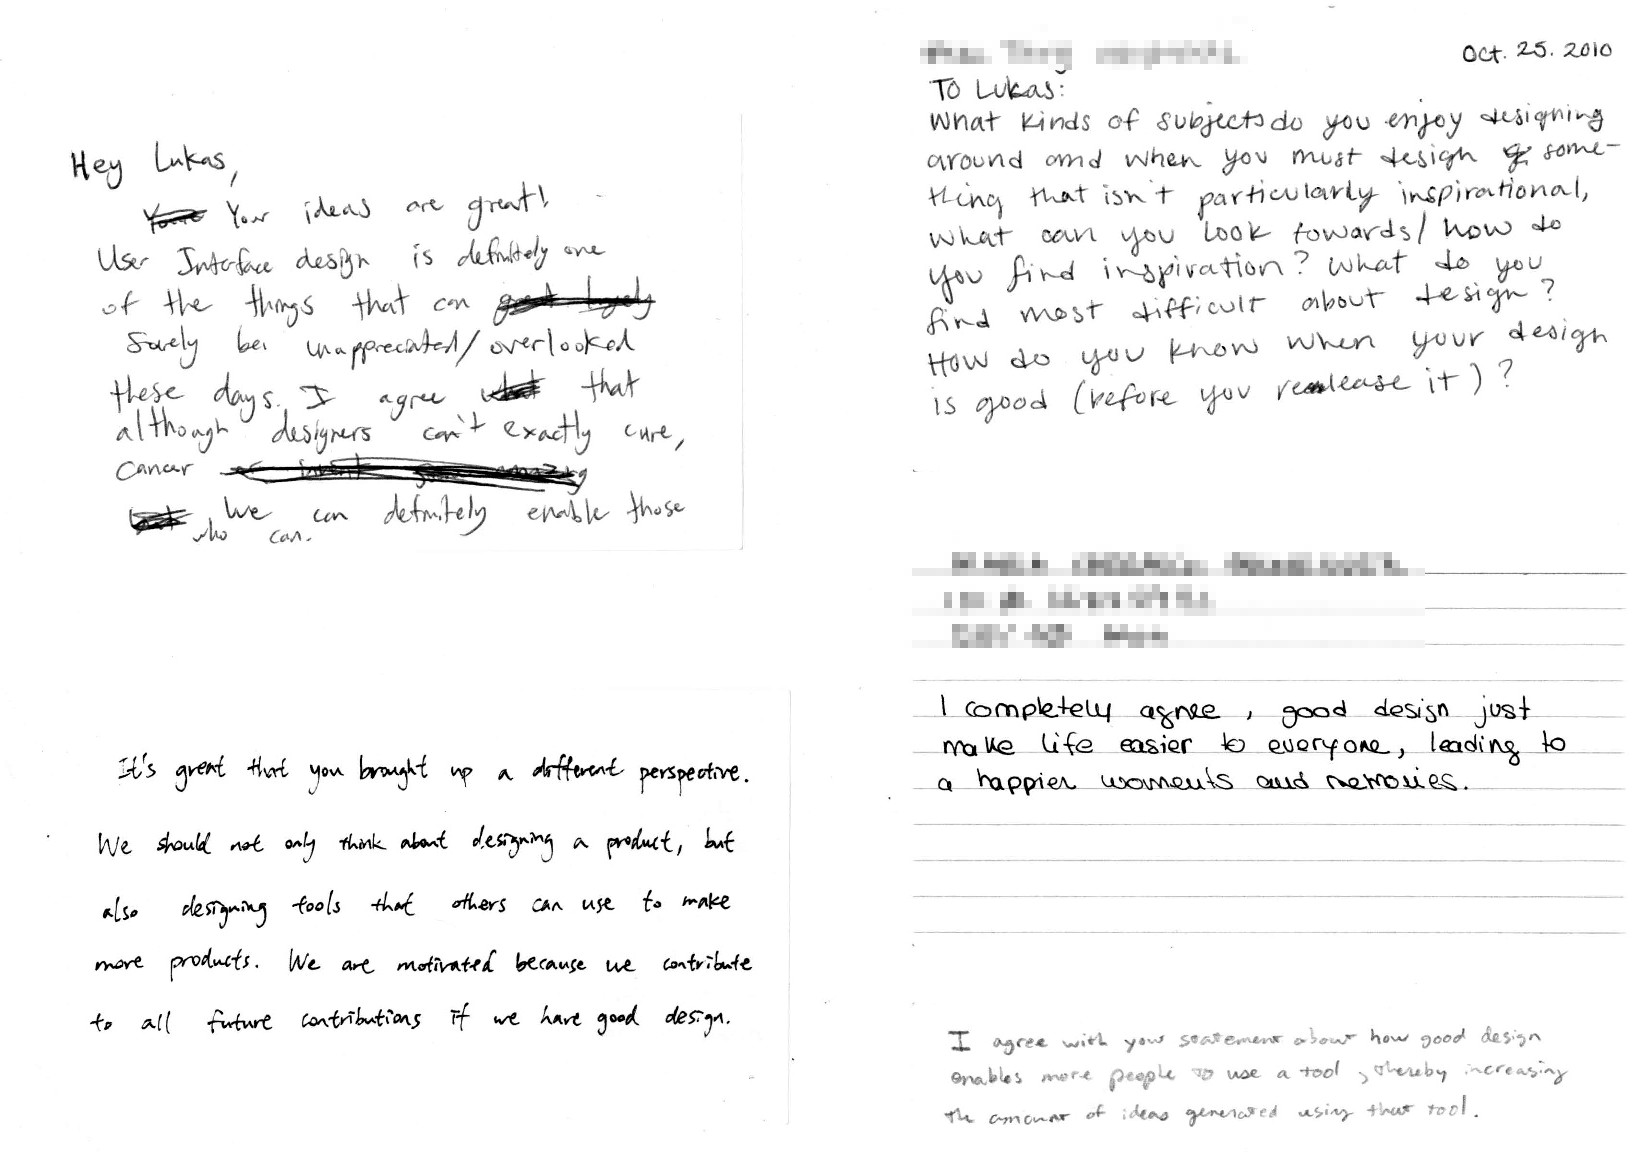 Hey Lukas,
Your ideas are great!
User Interface design is definitely one
of the things that can
Surely be unappreciated/overlooked
these days. I agree that
although designers can't exactly cure,
cancer
We can definitely enable those
who can.
It's great that you brought up a different perspective.
We should not only think about designing a product, but
also designing tools that others can use to make
more products. We are motivated because we contribute
to all future contributions if we have good design.
Oct. 25. 2010
To Lukas:
What kinds of subjects do you enjoy designing
around and when you must design some-
thing that isn't particularly inspirational,
what can you look towards/how do
you find inspiration? What do you
find most difficult about design?
How do you know when your design
is good (before you release it)?
I completely agree, good design just
make life easier to everyone, leading to
a happier moments and memories.
I agree with your statement about how good design
enables more people to use a tool, thereby increasing
the amount of ideas generated using that tool.